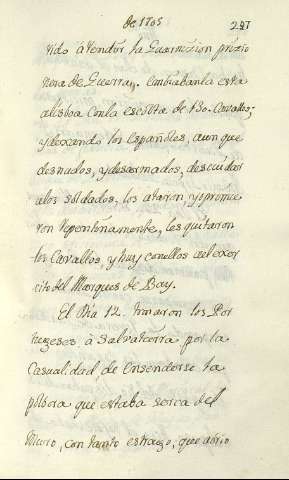 de 1705
247
tido á rendir la Guarnizion prizio
nera de Guerra,. Combiabanla esta
alisboa conla escolta de 130. Cavallos;
y dexando los Españoles, aun que
desnudos, y desarmados, descuidar
alos soldados, los ataron, y oprimie
ron repentinamente, les quitaron
los Cavallos, y huy con ellos al exer
cito del Marques de Bay.
El Dia 12. tomaron los Por
tugeses à Salvatierra por la
Casualidad, de ensenderse la
pòlbora que estaba serca del
Muro, con tanto estrago, que abrio